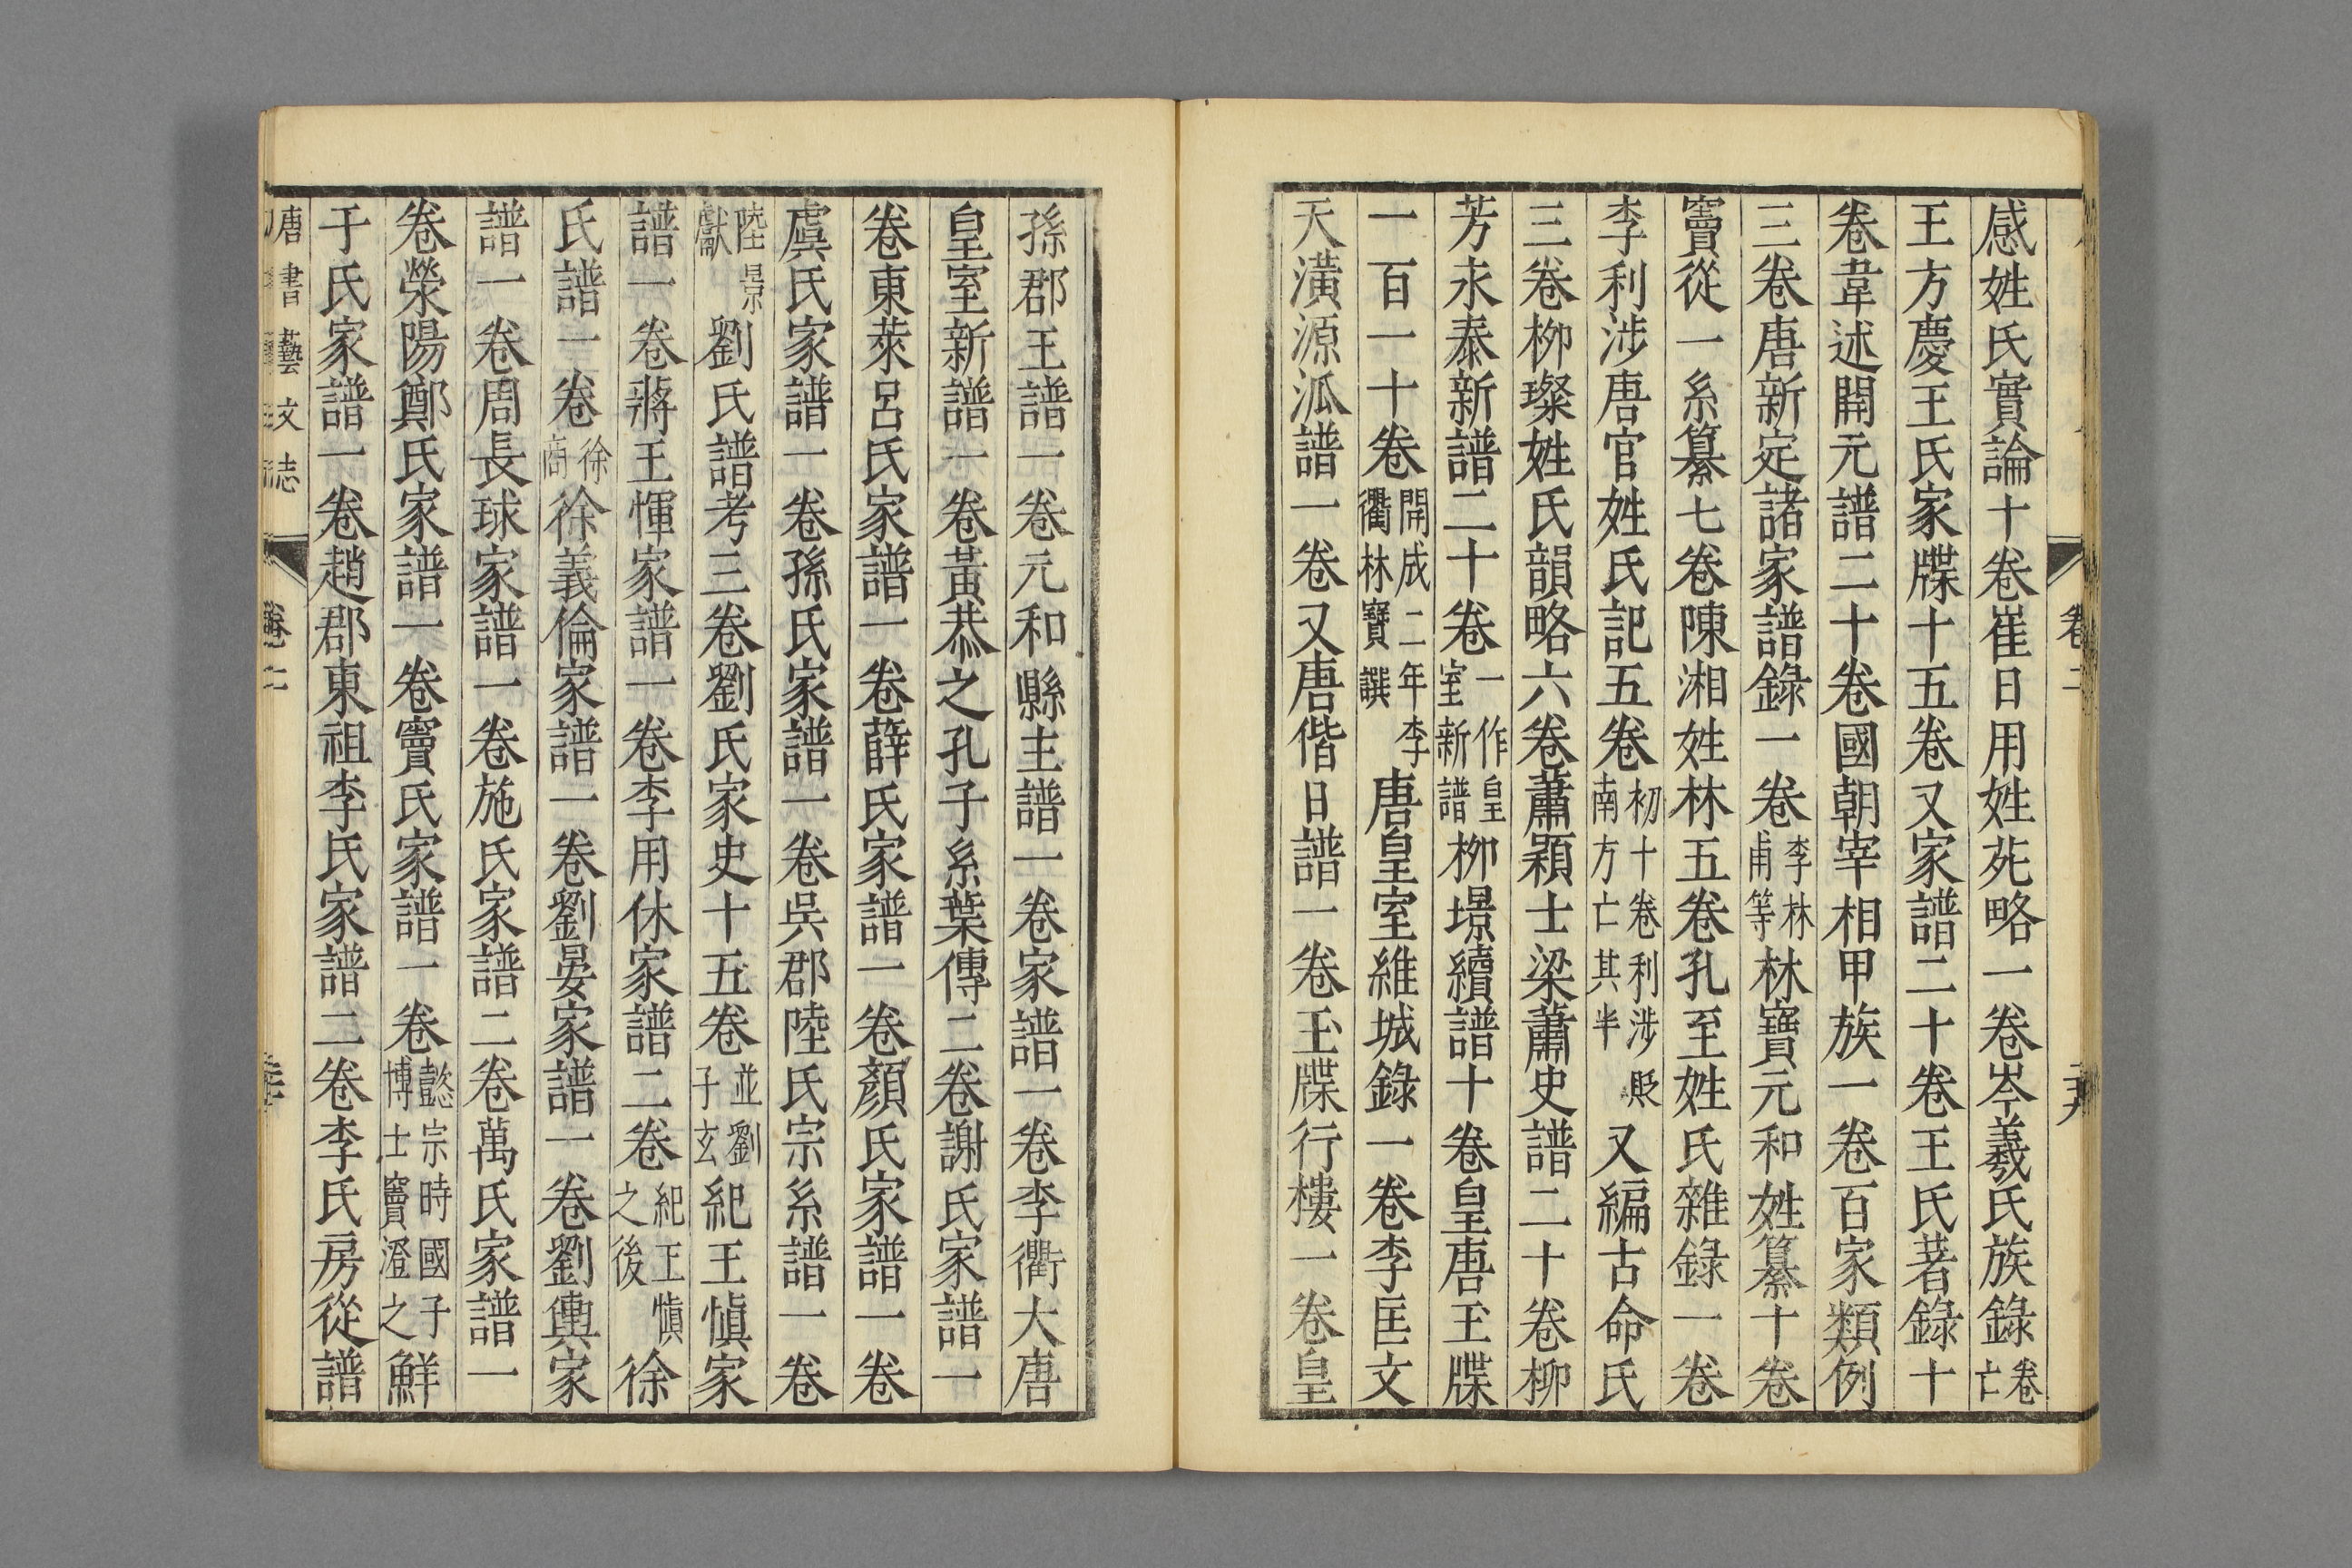 感姓氏實論十卷崔日用姓苑略一卷岑羲氏族錄卷亡
王方慶王氏家牒十五卷又家譜二十卷王氏著錄十
卷韋述開元譜二十卷國朝宰相甲族一卷百家類例
三卷唐新定諸家譜錄一卷李林甫等林寶元和姓纂十卷
竇從一系纂七卷陳湘姓林五卷孔至姓氏雜錄一卷
李利涉唐官姓氏記五卷初十卷利涉貶南方亡其半又編古命氏
三卷柳璨姓氏韻略六卷蕭穎士梁蕭史譜二十卷柳
芳永泰新譜二十卷一作皇室新譜柳璟續譜十卷皇唐玉牒
一百一十卷開成二年李衢林寶譔唐皇室維城錄一卷李匡文
天潢源泒譜一卷又唐偕日譜一卷玉牒行樓一卷皇
孫郡王譜一卷元和縣主譜一卷家譜一卷李衢大唐
皇室新譜一卷黃恭之孔子系葉傳二卷謝氏家譜一
卷東萊呂氏家譜一卷薛氏家譜一卷顏氏家譜一卷
虞氏家譜一卷孫氏家譜一卷吳郡陸氏宗系譜一卷
陸景獻劉氏譜考三卷劉氏家史十五卷並劉子玄紀王愼家
譜一卷蔣王惲家譜一卷李用休家譜二卷紀王愼之後徐
氏譜一卷徐商徐義倫家譜一卷劉晏家譜一卷劉輿家
譜一卷周長球家譜一卷施氏家譜二卷萬氏家譜一
卷滎陽鄭氏家譜一卷竇氏家譜一卷懿宗時國子博士竇澄之鮮
于氏家譜一卷趙郡東祖李氏家譜二卷李氏房從譜
唐書藝文志
卷二